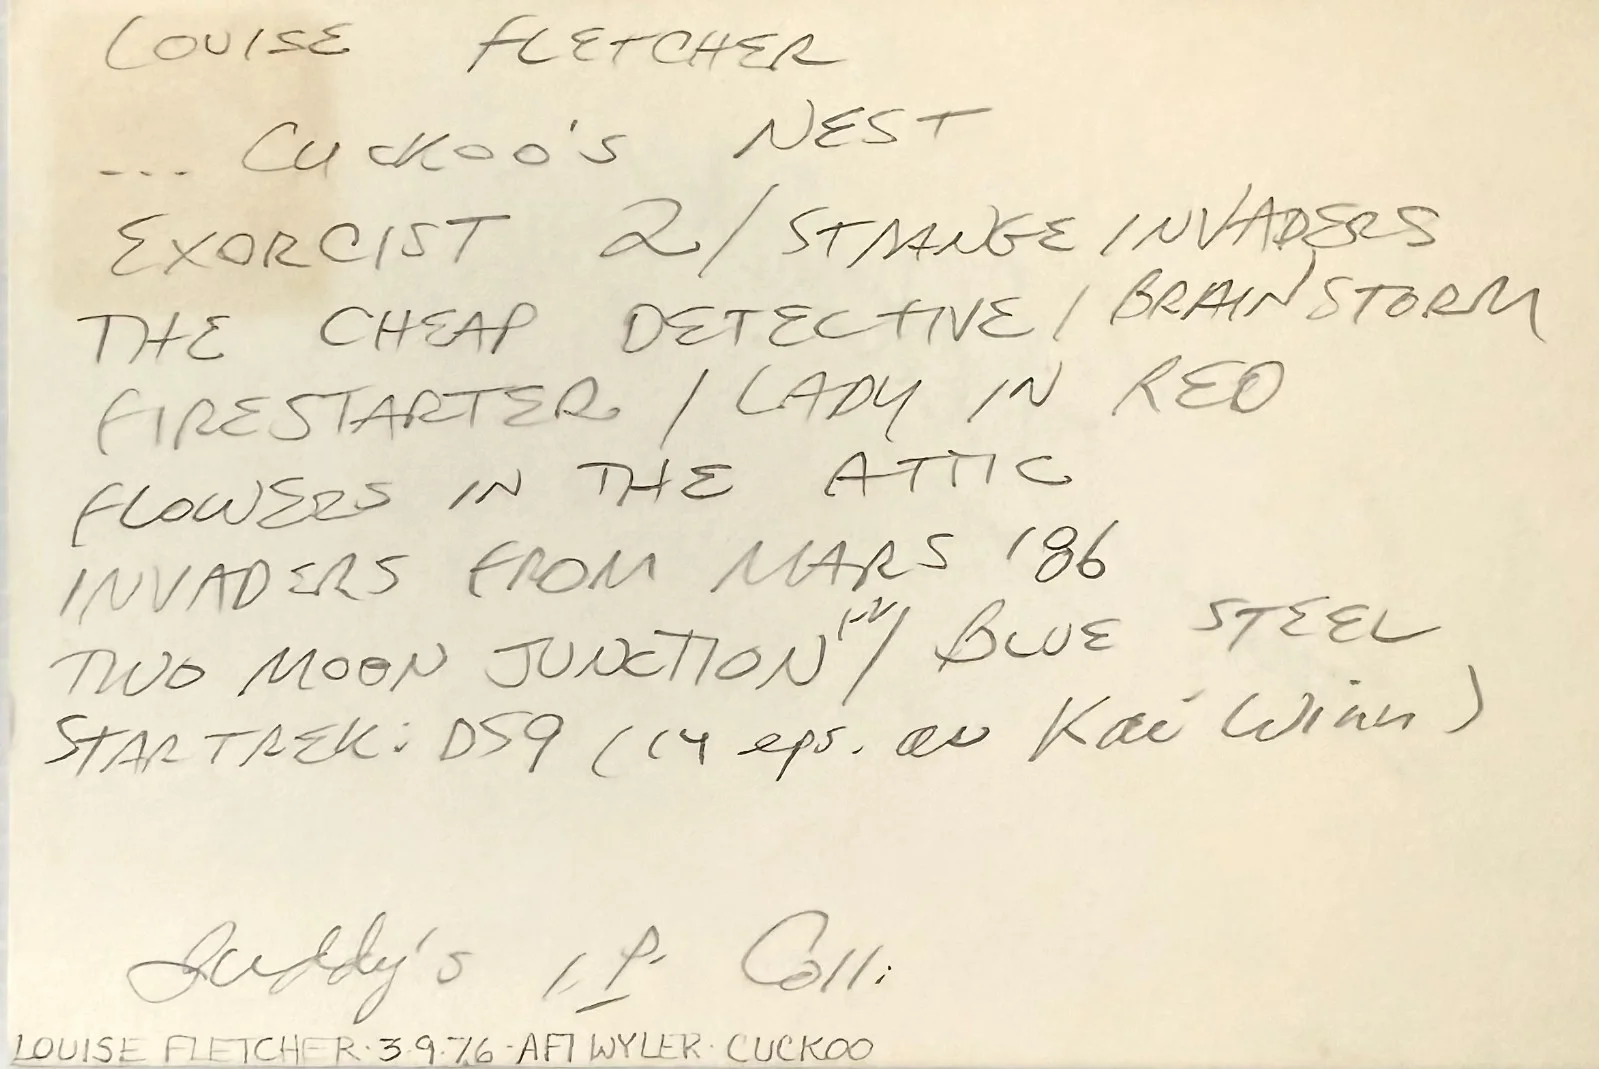 LOUISE FLETCHER
... CUCKOO'S NEST
EXORCIST 2 / STRANGE INVADERS
THE CHEAP DETECTIVE / BRAINSTORM
FIRESTARTER / LADY IN RED
FLOWERS IN THE ATTIC
INVADERS FROM MARS '86
TWO MOON JUNCTION / BLUE STEEL
STAR TREK: DS9 (14 eps. as Kai Winn)
I.P. Coll.
LOUISE FLETCHER · 3·9·76 · AFI WYLER · CUCKOO